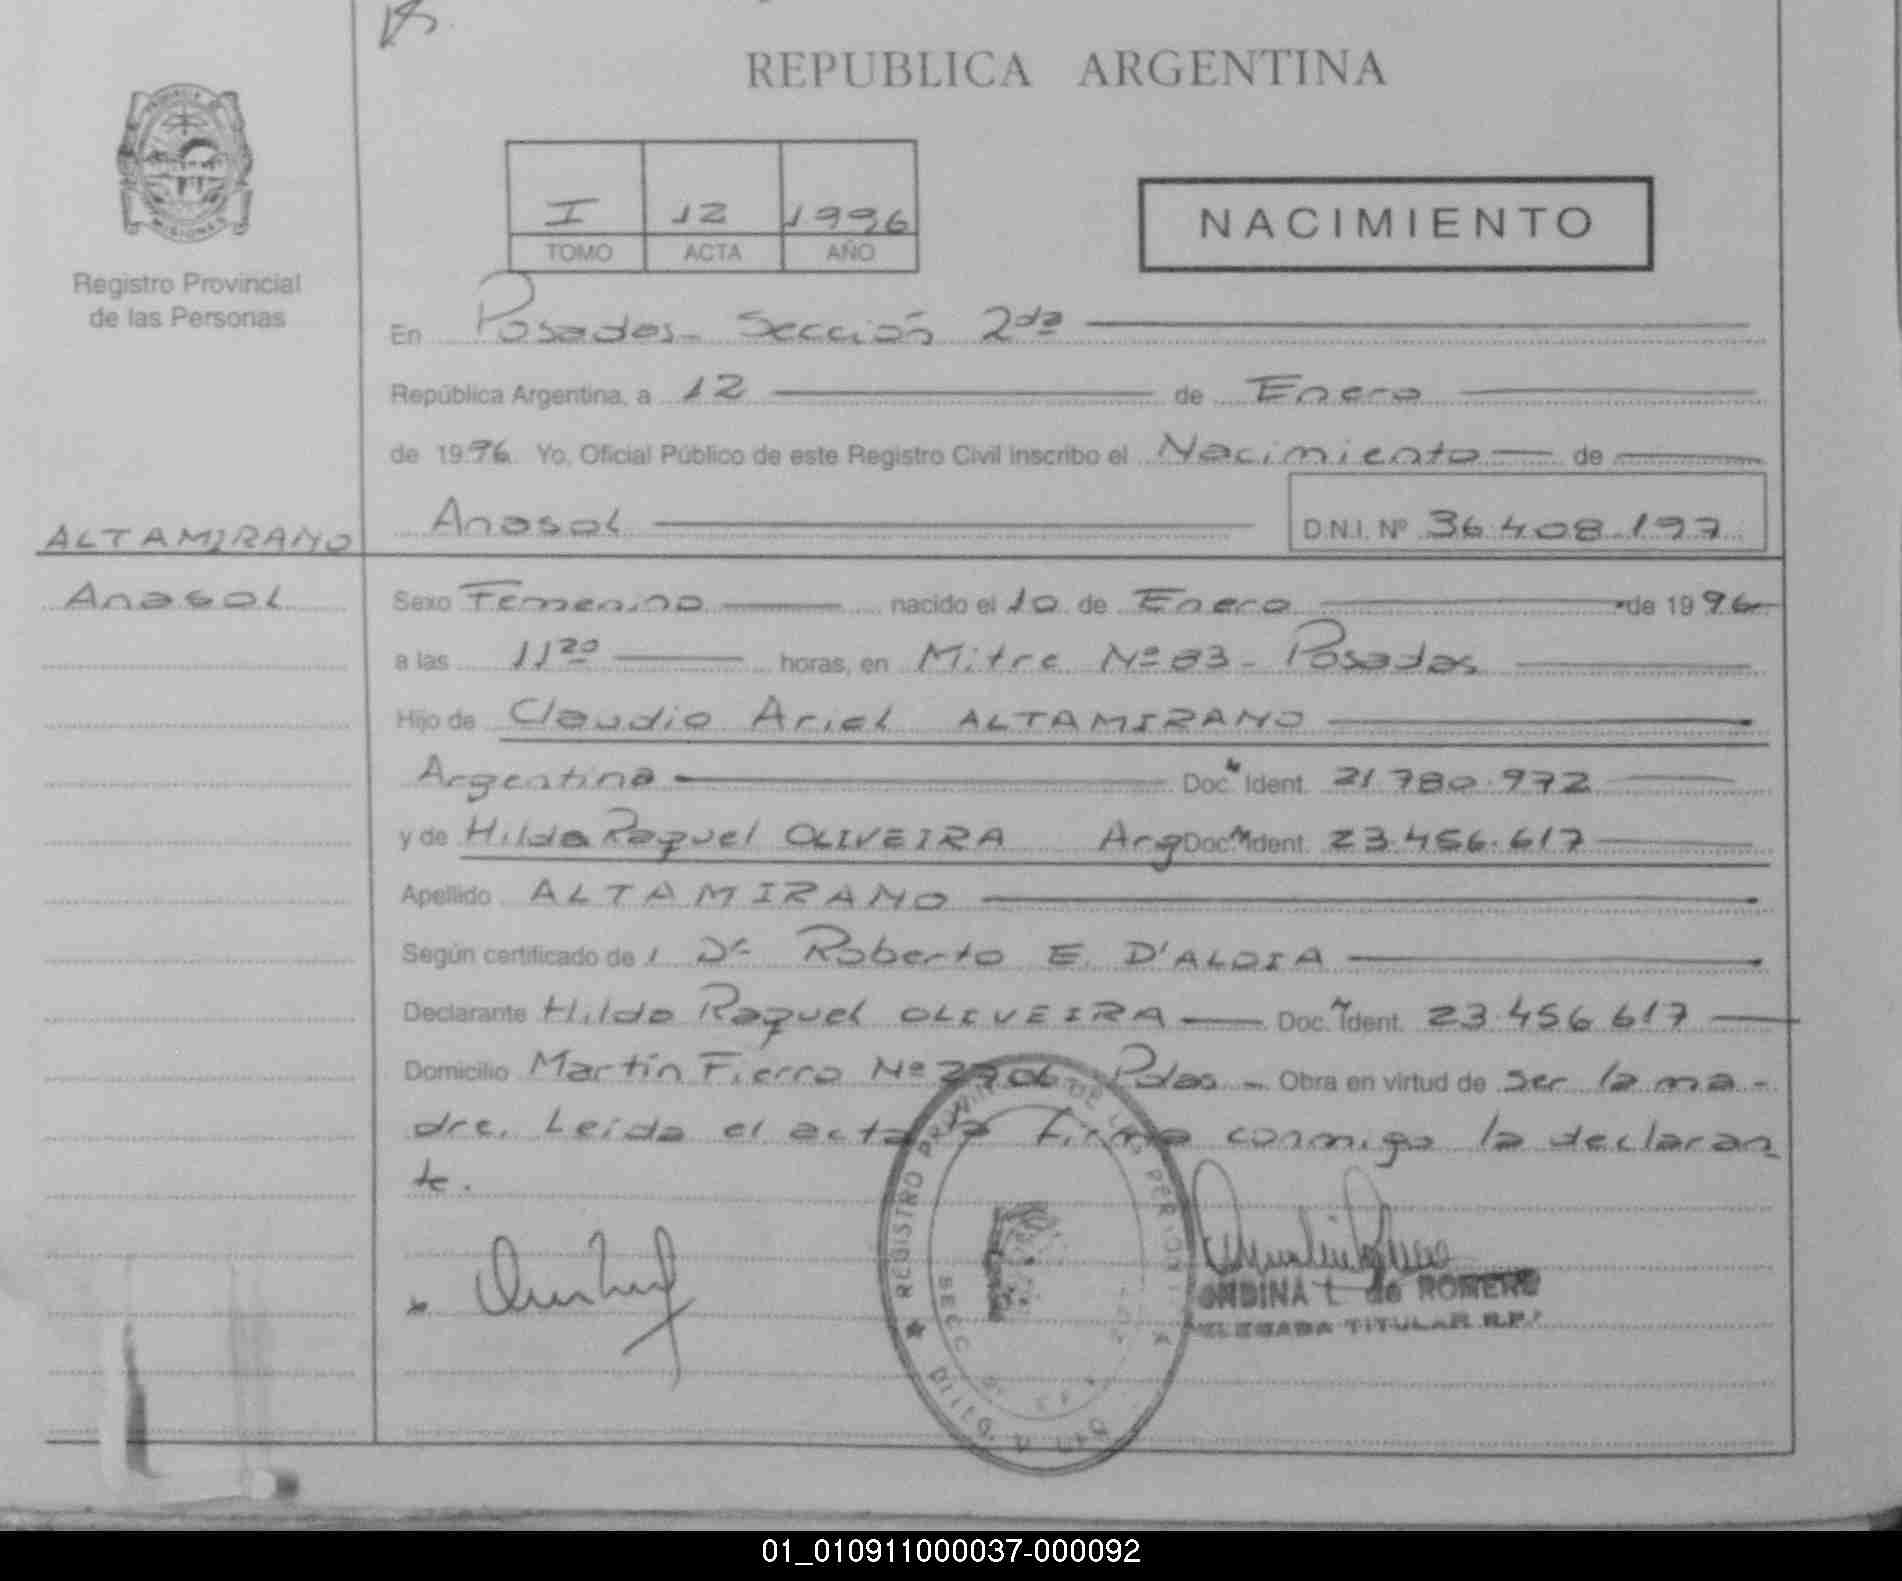 REPUBLICA ARGENTINA
MISIONES
I 12 1996
TOMO ACTA AÑO
NACIMIENTO
Registro Provincial
de las Personas
En Posadas - Sección 2da
República Argentina, a 12 de Enero
de 1996 Yo, Oficial Público de este Registro Civil inscribo el Nacimiento de
Anasol D.N.I. Nº 36.408.197
ALTAMIRANO
Anasol
Sexo Femenino nacido el 10 de Enero de 1996
a las 11 20 horas, en Mitre Nº 83 - Posadas
Hijo de Claudio Ariel ALTAMIRANO
Argentina Doc. Ident. 21.780.972
y de Hilda Raquel OLIVEIRA Arg Doc. Ident. 23.456.617
Apellido ALTAMIRANO
Según certificado de Dr. Roberto E. D'ALOIA
Declarante Hilda Raquel OLIVEIRA Doc. Ident. 23.456.617
Domicilio Martín Fierro Nº Pdas - Obra en virtud de ser la ma-
dre. Leída el acta la firma conmigo la declaran
te.
REGISTRO DE LAS PERSONAS
SECC
ONDINA L. de ROMERO
DELEGADA TITULAR R.P.
01_010911000037-000092